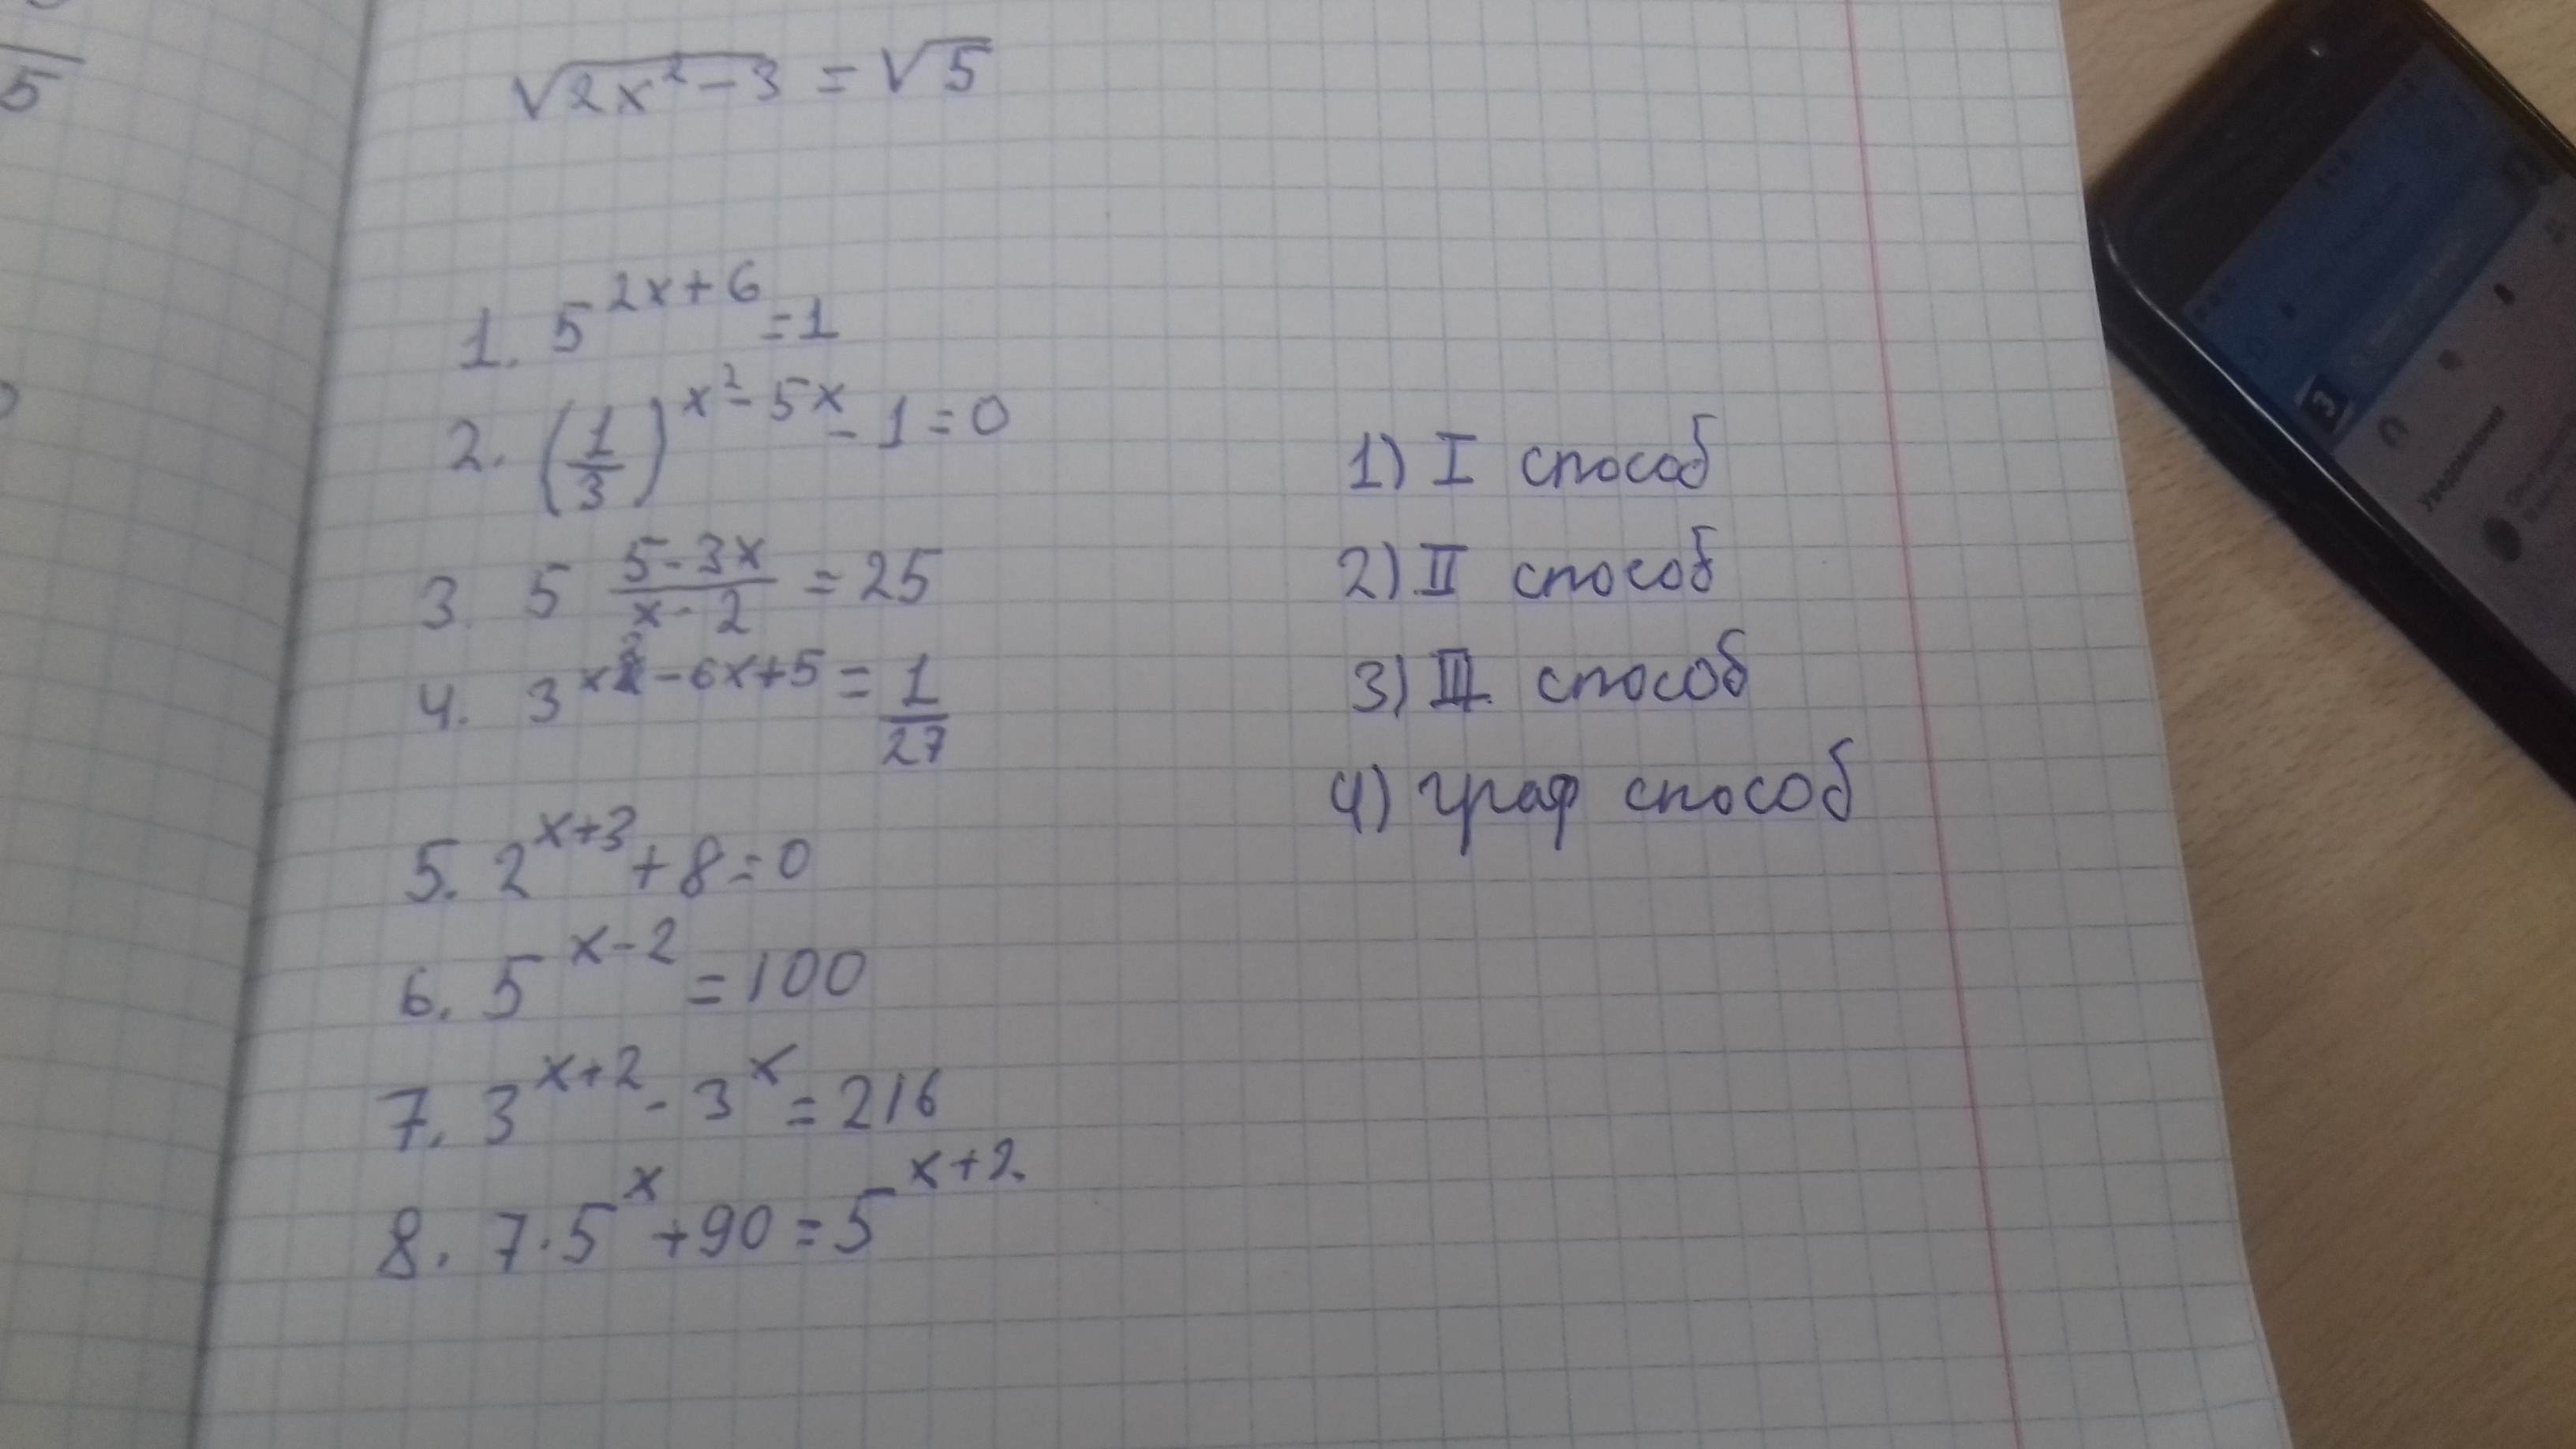 5
√2x² - 3 = √5
1. 5^{2x+6} = 1
2. (1/3)^{x²-5x} - 1 = 0
3. 5^{(5-3x)/(x-2)} = 25
4. 3^{x²-6x+5} = 1/27
5. 2^{x+3} + 8 = 0
6. 5^{x-2} = 100
7. 3^{x+2} - 3^x = 216
8. 7·5^x + 90 = 5^{x+2}
1) I способ
2) II способ
3) III способ
4) граф способ
3
Уведомления